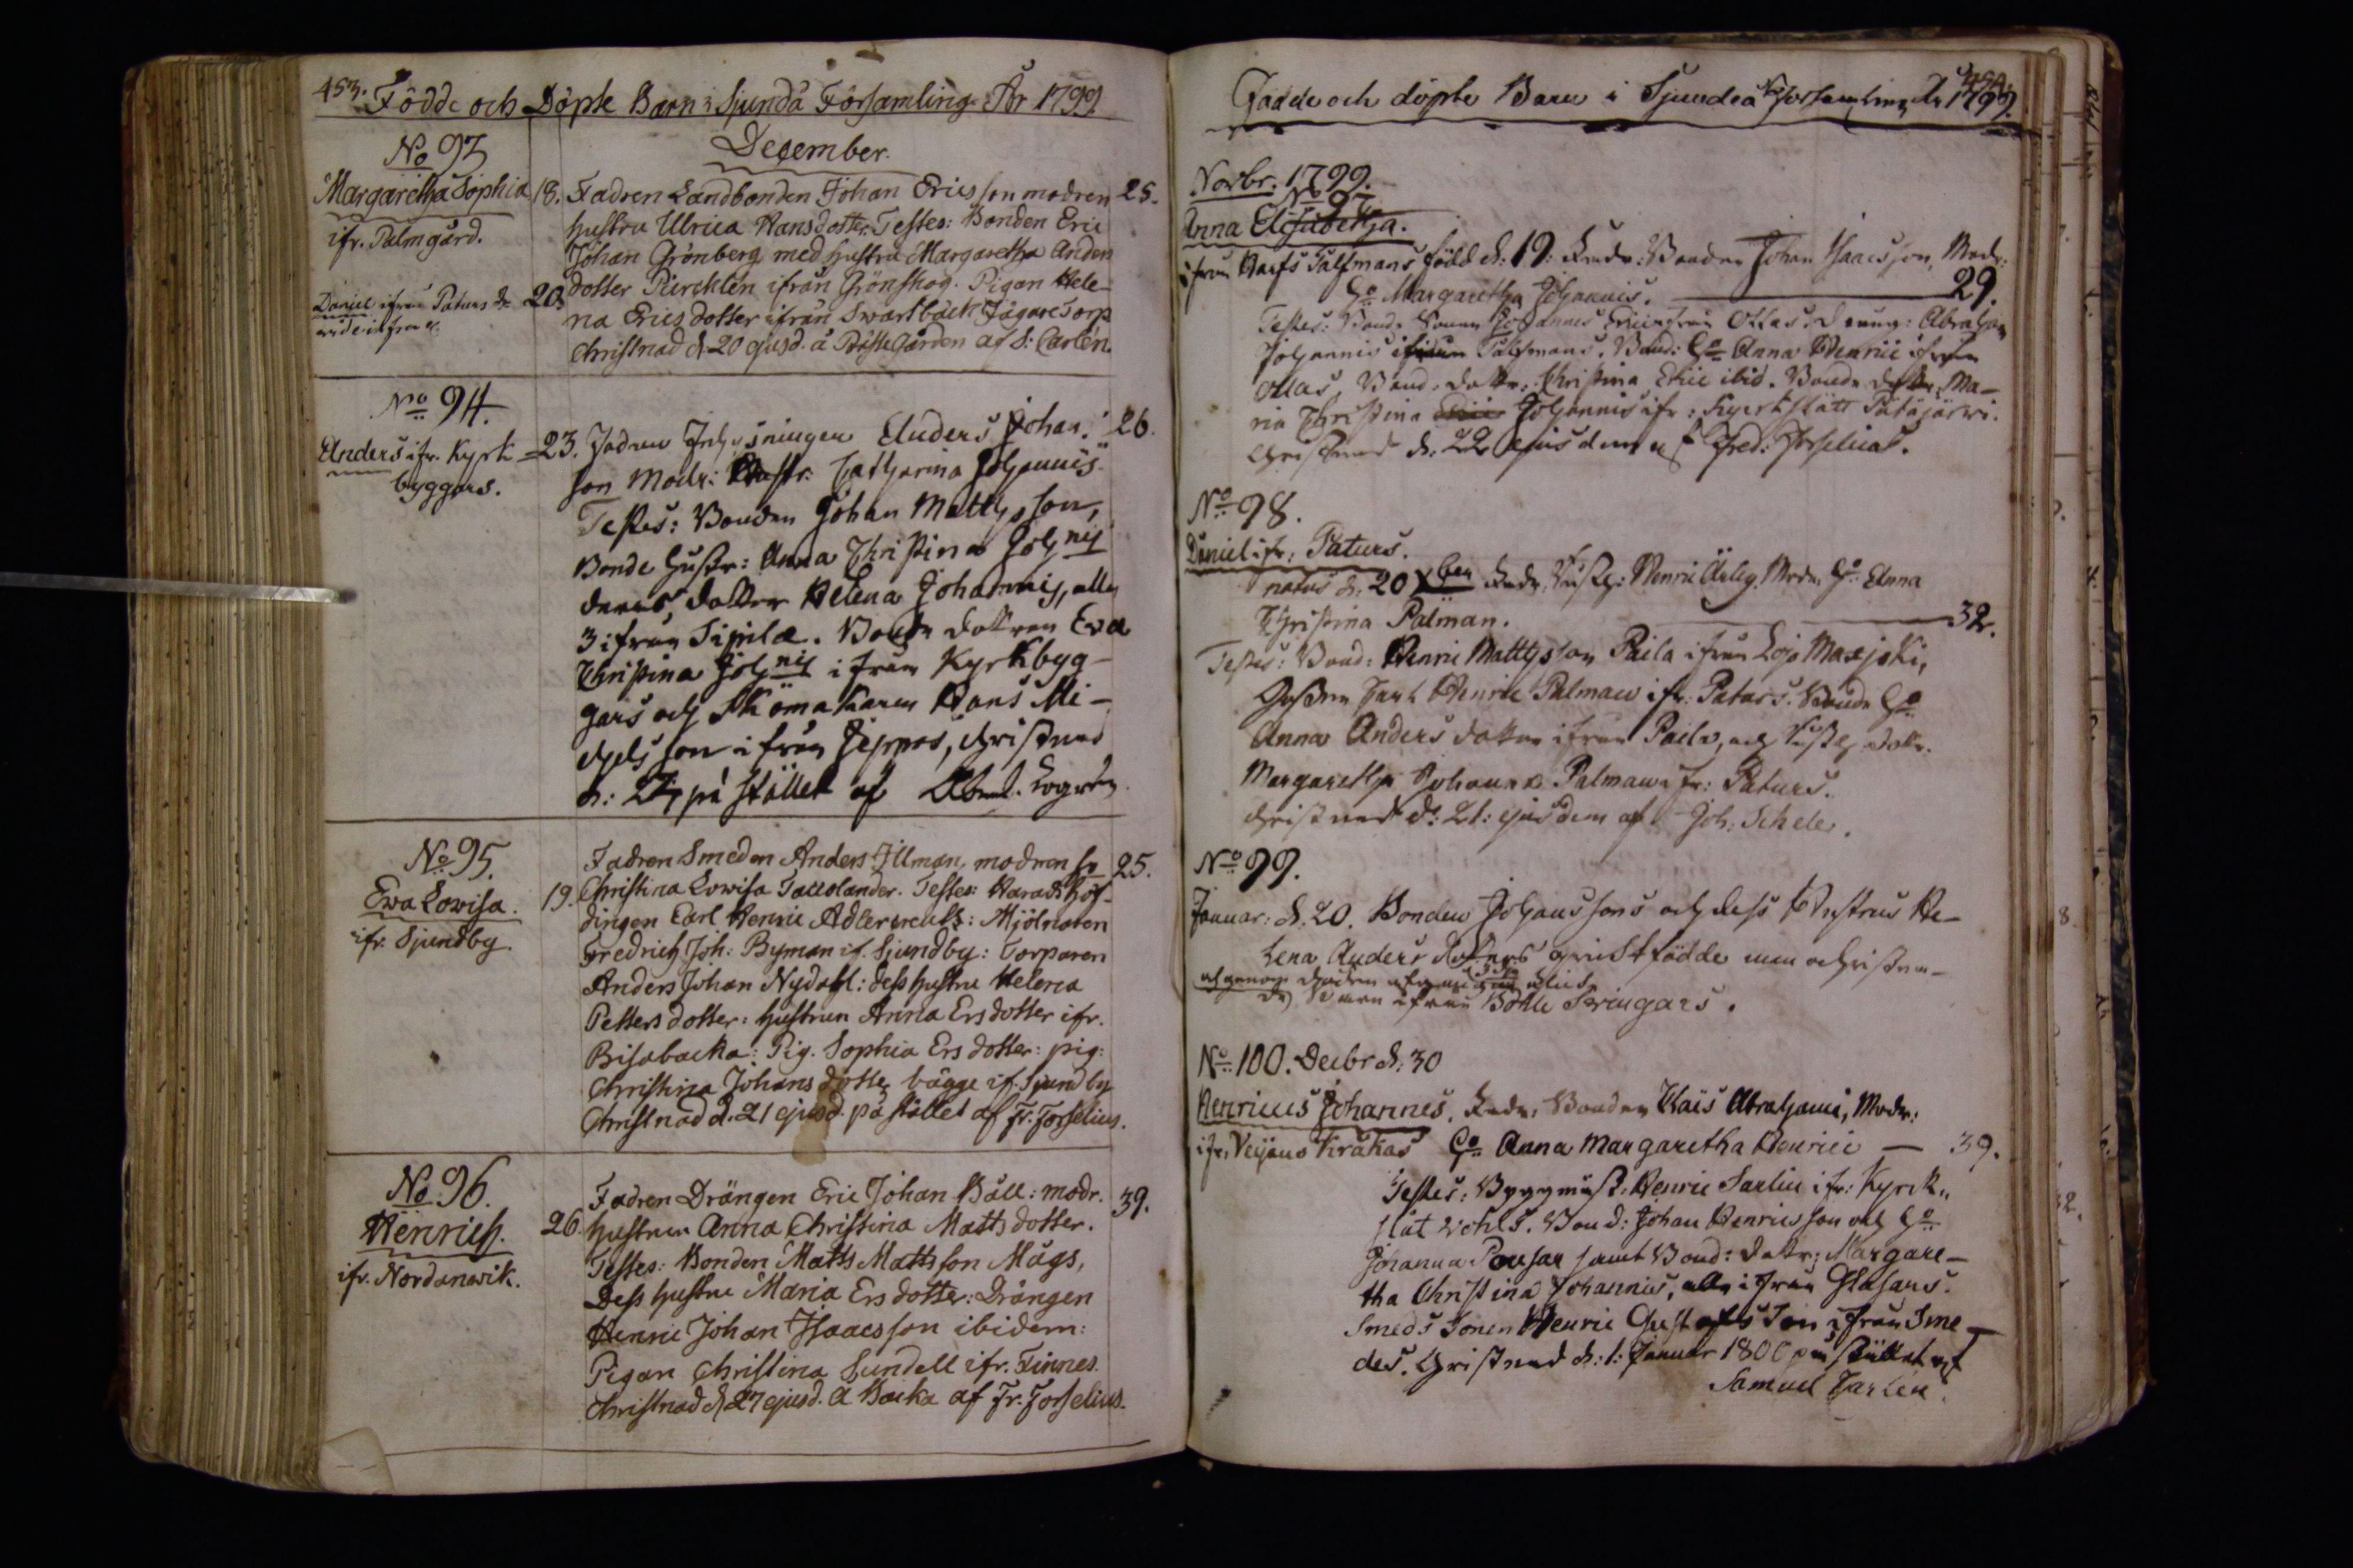 453. Födde och Döpte Barn i Sjundå Församling År 1799.
No 93
December.
Margaretha Sophia
ifr. Palmgård.
18. Fadren Landbonden Johan Ericsson modren 25.
hustru Ulrica Hansdotter. Testes: Bonden Eric
Johan Grönberg med hustru Margaretha Anders
dotter Piercklén ifrån Grönskog. Pigan Hele-
na Ericsdotter ifrån Swartbäck Jägare Torp
Christnad d. 20 ejusd. å Präste Gården af S: Carlén.
Daniel ifrån Paturs d. 20.
No 94.
Anders ifr. Kyrk=
byggars.
23. Fadren Inhysningen Anders Johan 26.
son Modr: Hustr: Catharina Johannis
Testes: Bonden Johan Mattsson,
Bonde Hustr: Anna Christina Joh nis
deras dotter Helena Johannis, alla
3 ifrån Sipilä. Bonde dottren Eva
Christina Joh nis ifrån Kyrkbyg-
gars och Skömakaren Hans Mi-
chelsson ifrån Jeppas, Christnad
d: 27, på stället af Logrén
No 95.
Ewa Lowisa.
ifr. Sjundby.
Fadren Smeden Anders Illman, modren h: 25.
19. Christina Lowisa Tallolander. Testes: Häradshöf-
dingen Carl Henric Adlercreutz: Mjölnaren
Fredrich Joh: Byman if. Sjundby: Torparen
Anders Johan Nydahl: dess hustru Helena
Pettersdotter: hustrun Anna Ersdotter ifr.
Bisabacka: Pig. Sophia Ersdotter: pig:
Christina Johansdotter bägge if. Sjundby
Christnad d. 21 ejusd. på stället af Fr. Forselius.
No 96.
Henrich.
ifr. Nordanwik.
Fadren Drängen Eric Johan Båll: modr. 39.
26. hustrun Anna Christina Mattsdotter.
Testes: Bonden Matts Mattsson Mågs,
Dess hustru Maria Ersdotter: Drängen
Henric Johan Isaacsson ibidem:
Pigan Christina Sundell ifr. Finnes.
Christnad d 27 ejusd. a Backa af Fr. Forselius.
Födde och döpte Barn i Sjundeå Församling År 1799. 454.
Novbr. 1799.
No 97
Anna Elisabetha.
ifrån Harfs Talsmans född d: 19: Fadr: Bonden Johan Isaacsson, Modr:
Ho Margaretha Johannis. 29.
Testes: Bonde Sonen Johannes Erici ifrån Ollas, Dräng: Abraham
Johannis ifrån Talsmans. Bond: Ho Anna Henrici ifrån
Ollas, Bond: dottr: Christina Erici ibid. Bonde dottr: Ma-
ria Christina Johannis ifr: Kyrkslätt Pätäjärwi.
Christnad d: 22 ejusdem af Fred: Forselius.
No 98.
Daniel ifr: Paturs.
natus d: 20 Xben Fadr. Henric Modr. Ho Anna
Christina Palman. 32.
Testes: Bond: Henric Mattsson Paila ifrån Lojo Maxjoki,
Gossen Carl Henric Palman ifr: Paturs. Bonde Ho
Anna Andersdotter ifrån Paila, och dottr.
Margaretha Johanna Palman ifr: Paturs.
Christnad d: 21: ejusdem af Joh: Schele.
No 99.
Januar: d. 20. Bonden Johanssons och dess Hustrus He-
lena Anders dotters födde men
Barn ifrån Böhle Swingars.
No 100. Decbr d: 30
Henricus Johannes. Fadr: Bonden Abrahami, Modr:
ifr: Veijans Kråkas Ho Anna Margaretha Henrici — 39.
Testes: Byggmäst: Henric Sarlin ifr: Kyrck-
slät Vohls. Bond: Johan Henricsson och Ho
Johanna Pousar samt Bond: dottr: Margare-
tha Christina Johannis, alla ifrån Glasars.
Smeds Sonen Henric Gustafs Son ifrån Sme-
des. Christnad d: 1: Januar 1800 på stället af
Samuel Carlén.